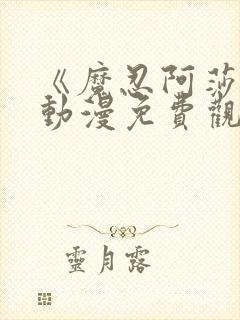 《魔忍阿莎
動漫免費觀
靈月露